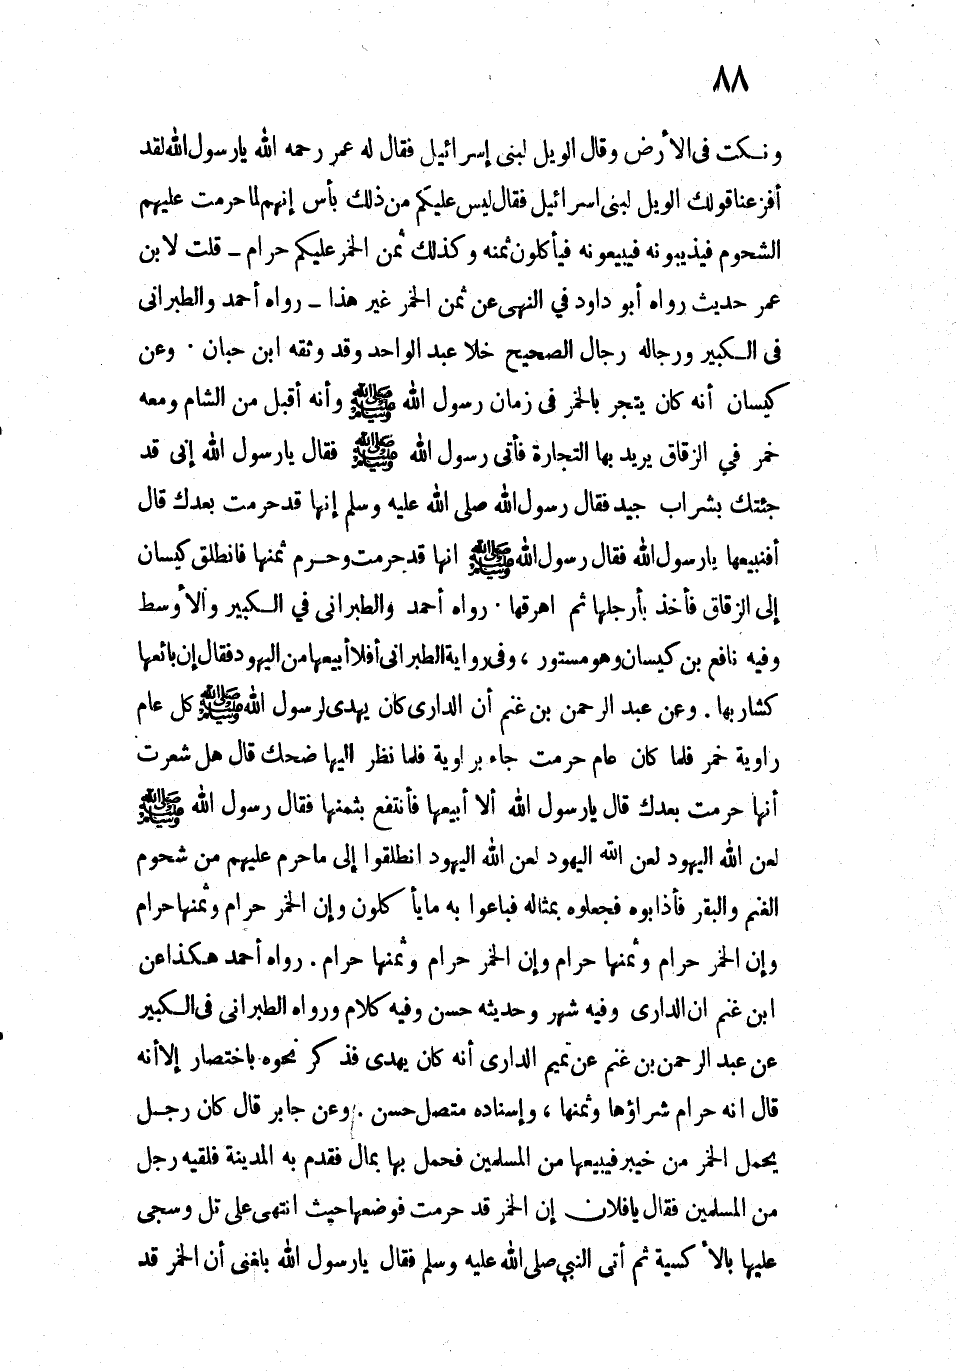 ٨٨
ونكت فى الأرض وقال الويل لبنى إسرائيل فقال له عمر رحمه الله يارسول الله لقد
أفزعنا قولك الويل لبنى اسرائيل فقال ليس عليكم من ذلك بأس إنهم لما حرمت عليهم
الشحوم فيذيبونه فيبيعونه فيأكلون ثمنه وكذلك ثمن الخمر عليكم حرام - قلت لابن
عمر حديث رواه أبو داود في النهى عن ثمن الخمر غير هذا - رواه أحمد والطبرانى
فى الكبير ورجاله رجال الصحيح خلا عبد الواحد وقد وثقه ابن حبان . وعن
كيسان أنه كان يتجر بالخمر فى زمان رسول الله ﷺ وأنه أقبل من الشام ومعه
خمر في الزقاق يريد بها التجارة فأتى رسول الله ﷺ فقال يارسول الله إنى قد
جئتك بشراب جيد فقال رسول الله صلى الله عليه وسلم إنها قد حرمت بعدك قال
أفنبيعها يارسول الله فقال رسول الله ﷺ انها قد حرمت وحرم ثمنها فانطلق كيسان
إلى الزقاق فأخذ بأرجلها ثم اهرقها . رواه أحمد والطبرانى في الكبير والأوسط
وفيه نافع بن كيسان وهو مستور ، وفى رواية الطبرانى أفلا أبيعها من اليهود فقال إن بائعها
كشاربها . وعن عبد الرحمن بن غنم أن الدارى كان يهدى لرسول الله ﷺ كل عام
راوية خمر فلما كان عام حرمت جاء براوية فلما نظر اليها ضحك قال هل شعرت
أنها حرمت بعدك قال يارسول الله ألا أبيعها فأنتفع بثمنها فقال رسول الله ﷺ
لعن الله اليهود لعن الله اليهود لعن الله اليهود انطلقوا إلى ماحرم عليهم من شحوم
الغنم والبقر فأذابوه فجعلوه بمثاله فباعوا به ما يأكلون وإن الخمر حرام وثمنها حرام
وإن الخمر حرام وثمنها حرام وإن الخمر حرام وثمنها حرام . رواه أحمد هكذا عن
ابن غنم ان الدارى وفيه شهر وحديثه حسن وفيه كلام ورواه الطبرانى فى الكبير
عن عبد الرحمن بن غنم عن تميم الدارى أنه كان يهدى فذكر نحوه باختصار إلا أنه
قال انه حرام شراؤها وثمنها ، وإسناده متصل حسن . وعن جابر قال كان رجل
يحمل الخمر من خيبر فيبيعها من المسلمين فحمل بها بمال فقدم به المدينة فلقيه رجل
من المسلمين فقال يافلان إن الخمر قد حرمت فوضعها حيث انتهى على تل وسجى
عليها بالأكسية ثم أتى النبي صلى الله عليه وسلم فقال يارسول الله بلغنى أن الخمر قد